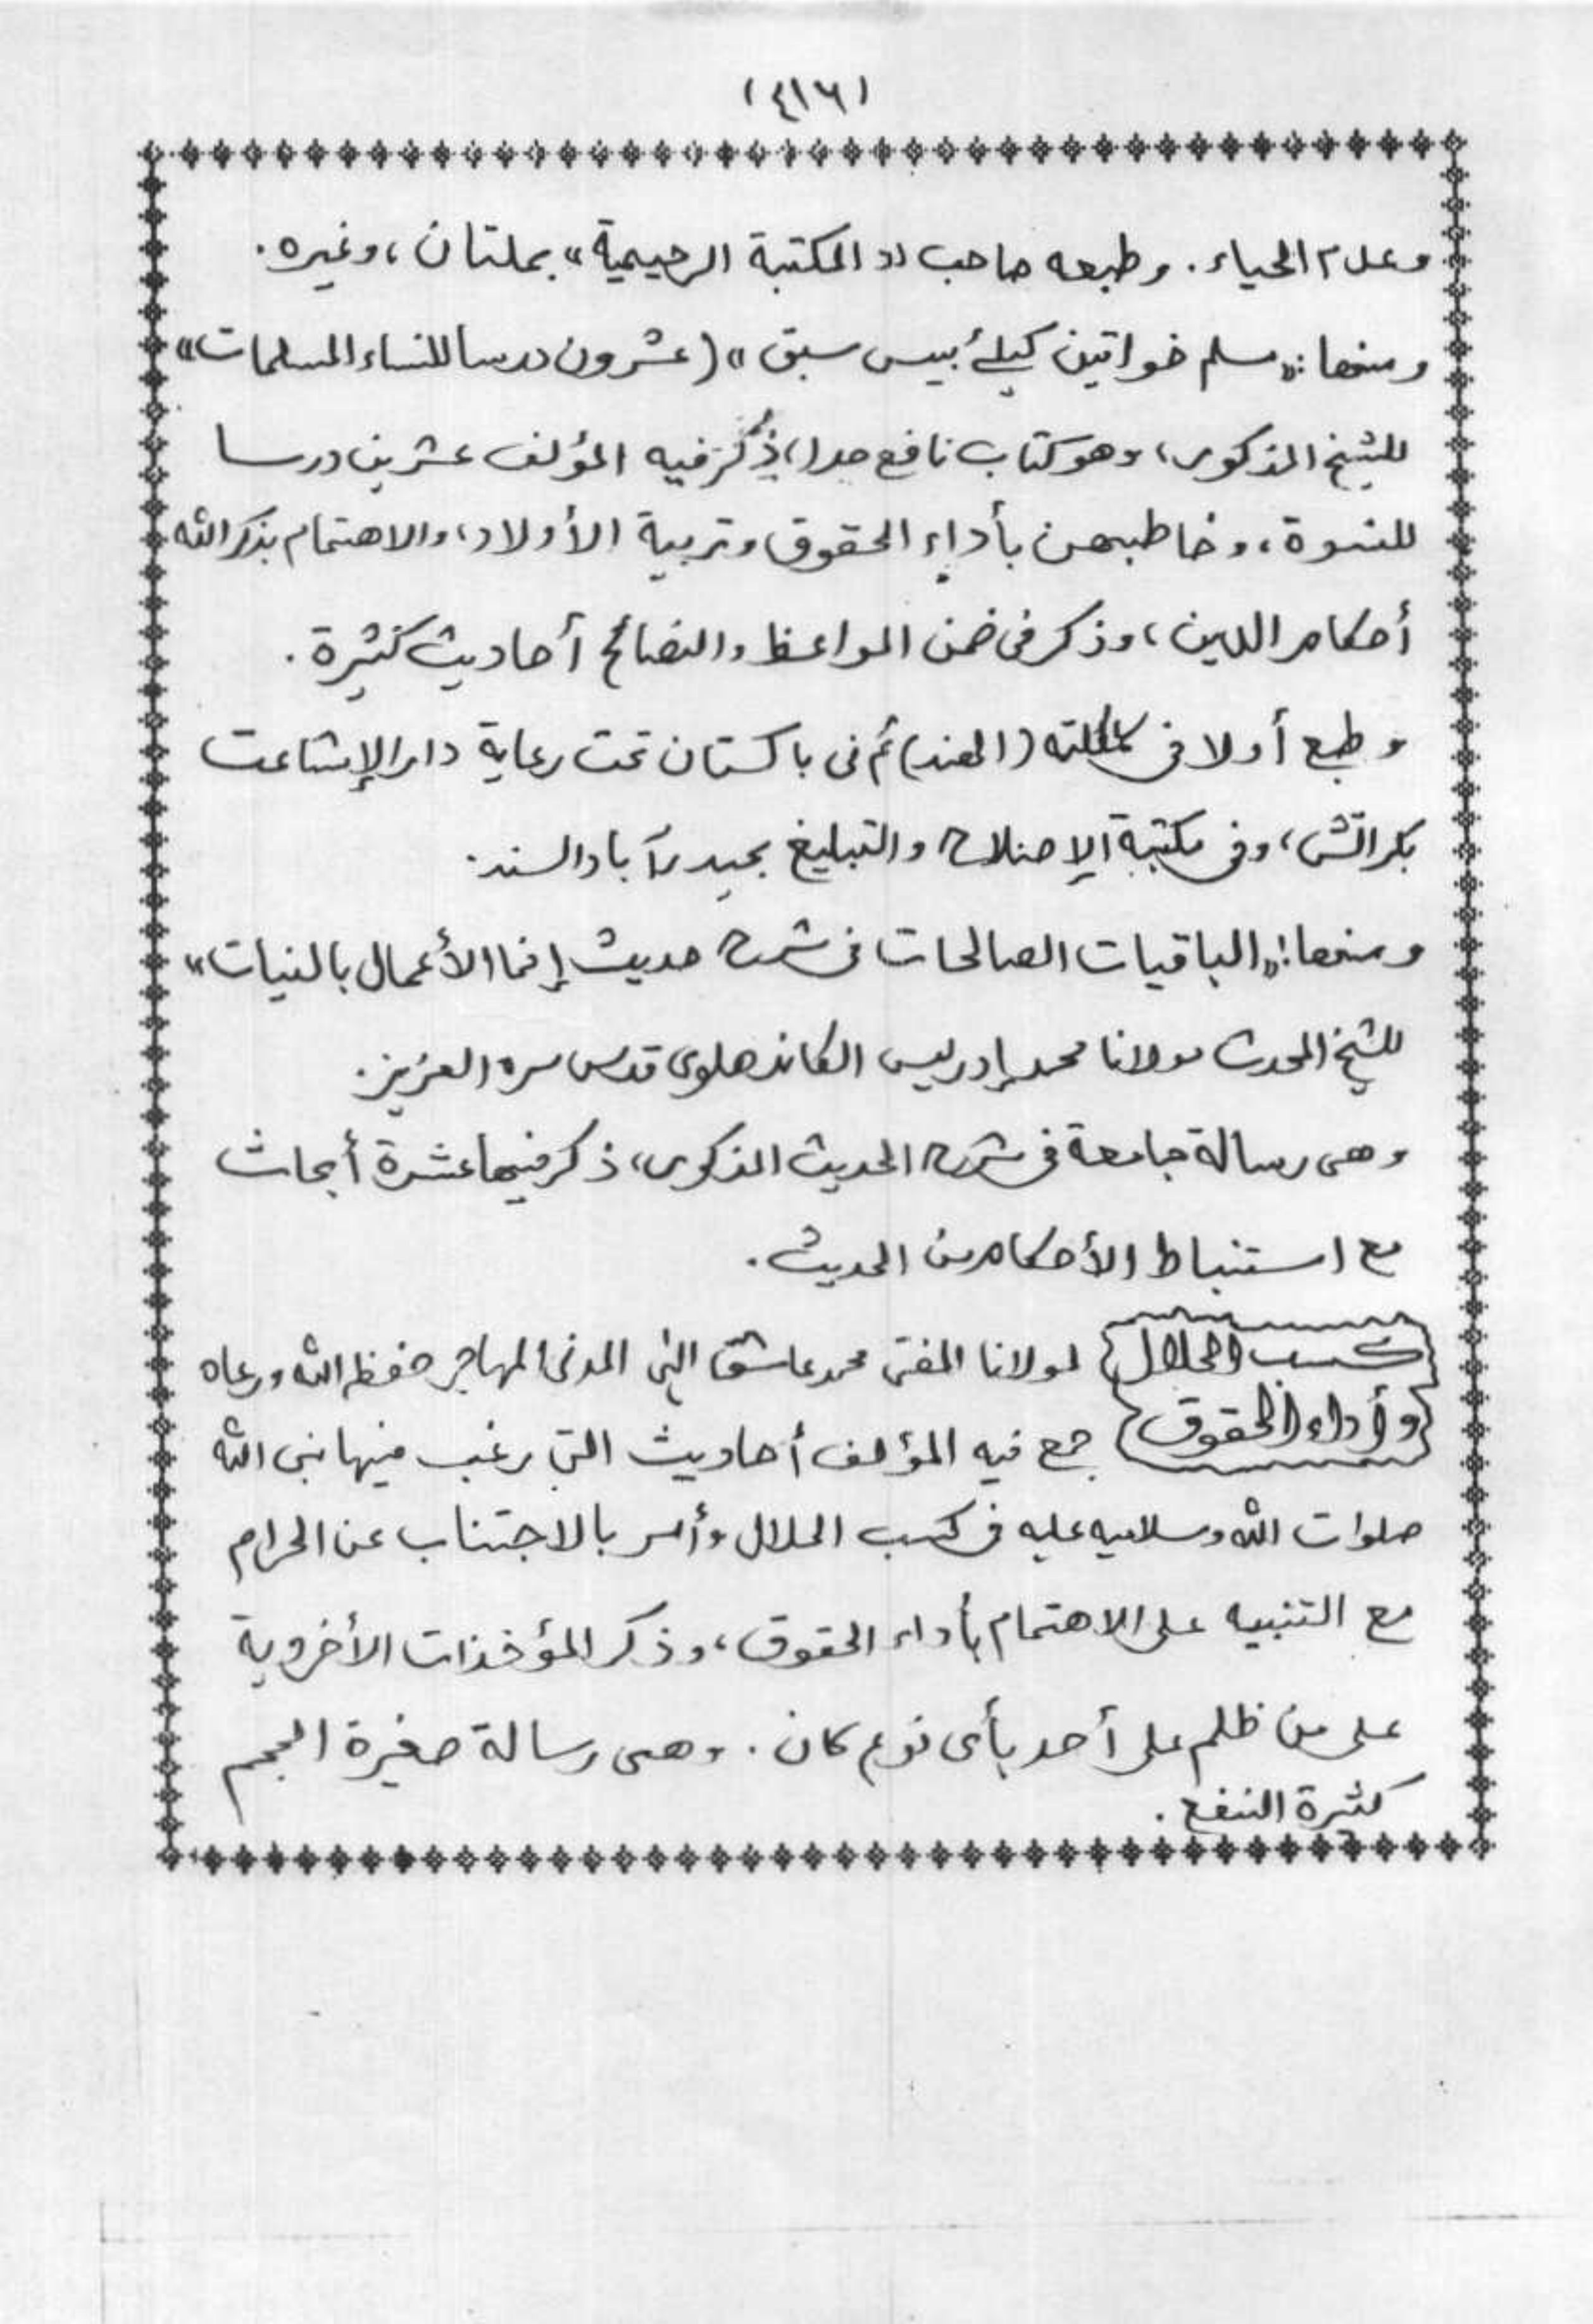 (٤١٦)
وعدم الحياء. وطبعه صاحب «المكتبة الرحيمية» بملتان، وغيره.
ومنها: «مسلم خواتين كيلئے بيس سبق» (عشرون درسا للنساء المسلمات»
للشيخ المذكور، وهو كتاب نافع جدا، ذُكر فيه المؤلف عشرين درسا
للنسوة، وخاطبهن بأداء الحقوق وتربية الأولاد، والاهتمام بذكر الله
أحكام الدين، وذكر فى ضمن المواعظ والنصائح أحاديث كثيرة.
وطبع أولا فى كلكته (الهند) ثم فى باكستان تحت رعاية دار الإشاعت
بكراتشى، وفى مكتبة الإصلاح والتبليغ بحيدرآباد السند.
ومنها: «الباقيات الصالحات فى شرح حديث إنما الأعمال بالنيات»
للشيخ المحدث مولانا محمد إدريس الكاندهلوى قدس سره العزيز.
وهى رسالة جامعة فى شرح الحديث المذكور، ذكر فيها عشرة أبحاث
مع استنباط الأحكام من الحديث.
كسب الحلال لمولانا المفتى محمد عاشق إلهى المدنى المهاجر حفظه الله ورعاه
وأداء الحقوق جمع فيه المؤلف أحاديث التى رغب فيها نبى الله
صلوات الله وسلامه عليه فى كسب الحلال وأمر بالاجتناب عن الحرام
مع التنبيه على الاهتمام بأداء الحقوق، وذكر المؤخذات الأخروية
على من ظلم على أحد بأى نوع كان. وهى رسالة صغيرة الحجم
كثيرة النفع.